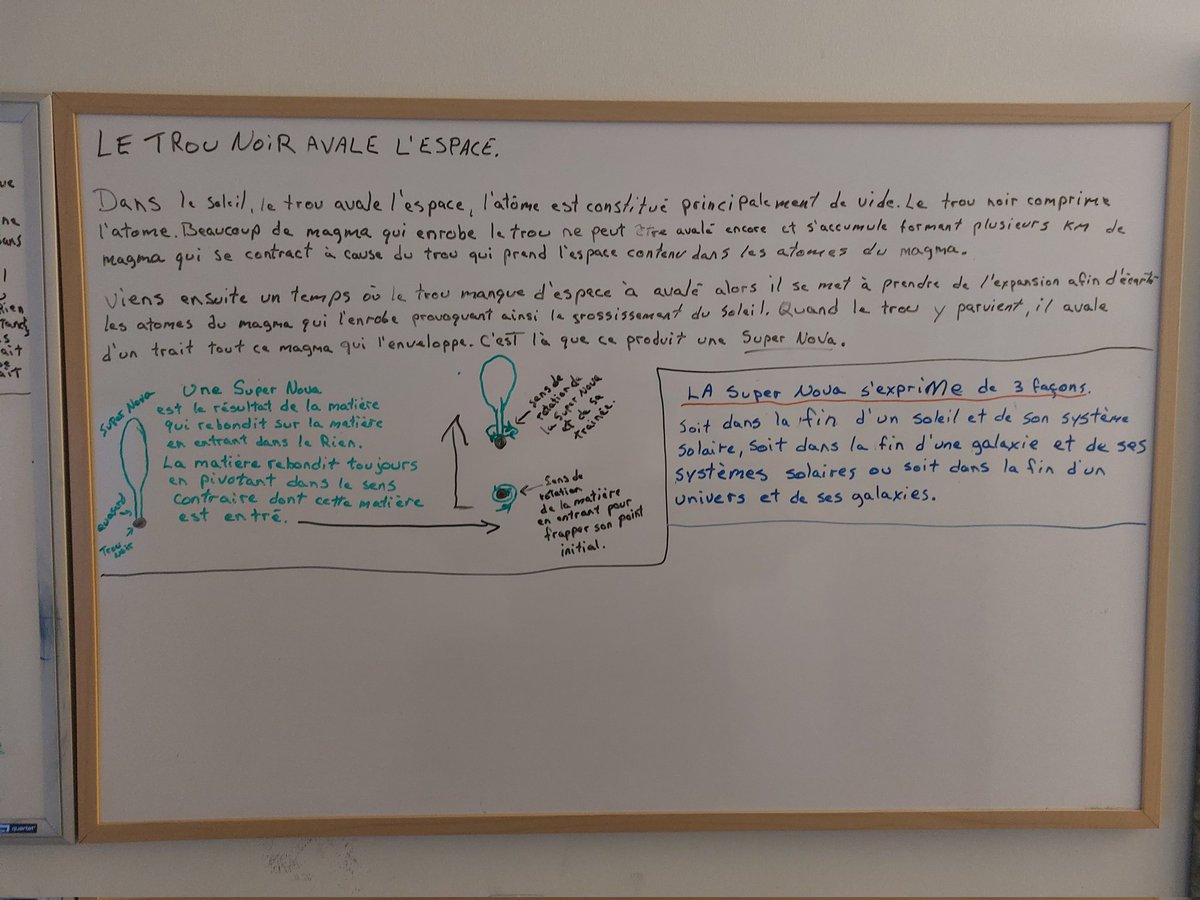 LE TROU NOIR AVALE L'ESPACE.
Dans le soleil, le trou avale l'espace, l'atôme est constitué principalement de vide. Le trou noir comprime
l'atome. Beaucoup de magma qui enrobe le trou ne peut être avalé encore et s'accumule formant plusieurs KM de
magma qui se contract à cause du trou qui prend l'espace contenu dans les atomes du magma.
Viens ensuite un temps où le trou manque d'espace à avalé alors il se met à prendre de l'expansion afin d'écarté
les atomes du magma qui l'enrobe provoquant ainsi le grossissement du soleil. Quand le trou y parvient, il avale
d'un trait tout ce magma qui l'enveloppe. C'est là que ce produit une Super Nova.
Super Nova
Quasard
Trou noir
Une Super Nova
est le résultat de la matière
qui rebondit sur la matière
en entrant dans le Rien.
La matière rebondit toujours
en pivotant dans le sens
contraire dont cette matière
est entré.
sens de
rotation de
la Super Nova
et de sa
trainée.
Sens de
rotation
de la matière
en entrant pour
frapper son point
initial.
LA Super Nova s'exprime de 3 façons.
Soit dans la fin d'un soleil et de son système
solaire, soit dans la fin d'une galaxie et de ses
systèmes solaires ou soit dans la fin d'un
univers et de ses galaxies.
quartet